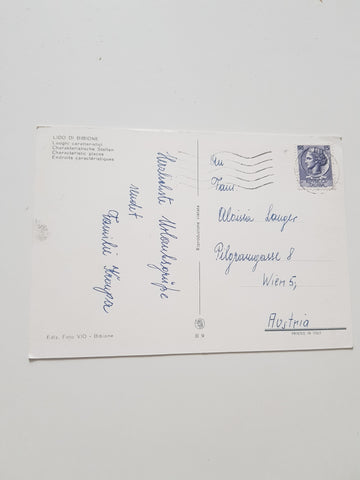 LIDO DI BIBIONE
Luoghi caratteristici
Charakteristische Stellen
Characteristic places
Endroits caractéristiques
Herzlichste Urlaubsgrüße
sendet
Familie Kroupa
Ediz. Foto VIO - Bibione
An
Fam.
Aloisia Langer
Pilgramgasse 8
Wien 5,
Austria
PRINTED IN ITALY